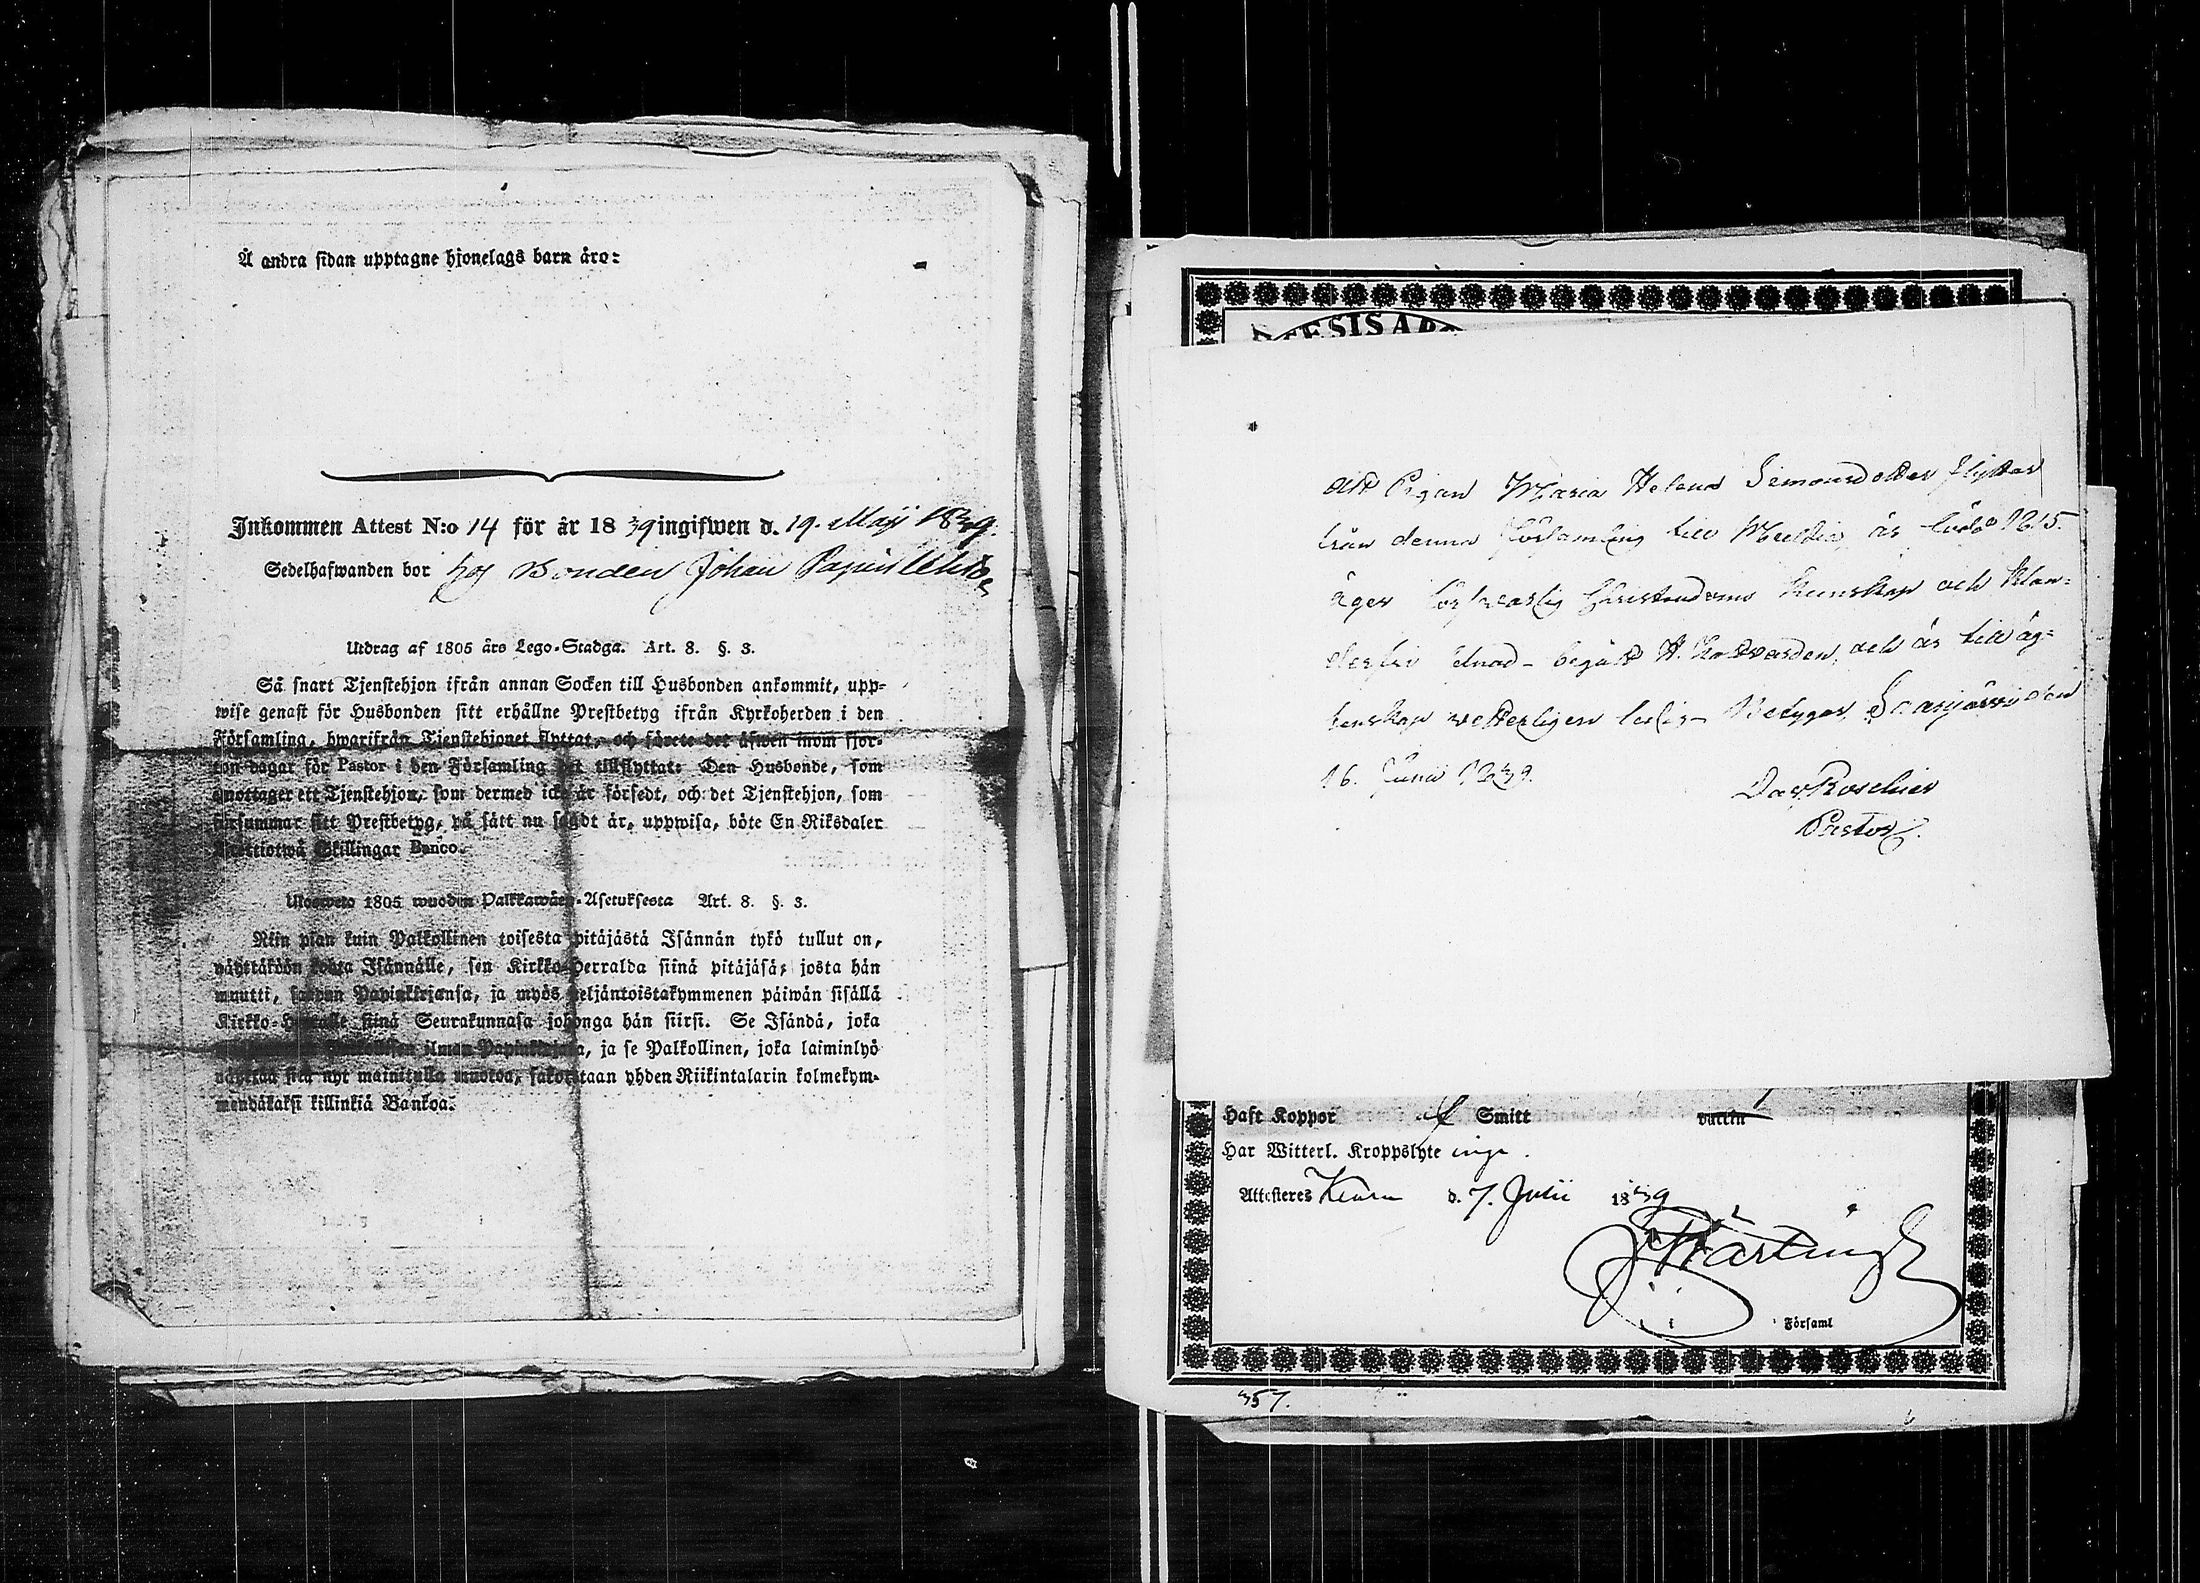 Å andra sidan upptagne hjonelags barn äro:
Inkommen Attest N:o 14 för år 1839 ingifwen d. 19. Maji 1839.
Sedelhafwanden bor hos Bonden Johan
Utdrag af 1805 års Lego-Stadga. Art. 8. §. 3.
Så snart Tjenstehjon ifrån annan Socken till Husbonden ankommit, upp-
wise genast för Husbonden sitt erhållne Prestbetyg ifrån Kyrkoherden i den
Församling, hwarifrån Tjenstehjonet flyttat, och förete det äfwen inom fjor-
ton dagar för Pastor i den Församling det tillflyttat: Den Husbonde, som
emottager ett Tjenstehjon, som dermed icke är försedt, och det Tjenstehjon, som
försummar sitt Prestbetyg, på sätt nu sagdt är, uppwisa, böte En Riksdaler
Trettiotwå Skillingar Banco.
Ulosweto 1805 wuoden Palkkawäen-Asetuksesta Art. 8. §. 3.
Niin pian kuin Palkollinen toisesta pitäjästä Isännän tykö tullut on,
näyttäköön kohta Isännälle, sen Kirkko-Herralda siinä pitäjäsä, josta hän
muutti, saadun Papinkirjansa, ja myös neljäntoistakymmenen päiwän sisällä
Kirkko-Herralle siinä Seurakunnasa johonga hän siirsi. Se Isändä, joka
ilman Papinkirjata, ja se Palkollinen, joka laiminlyö
näyttää sitä nyt mainitulla muotoa, sakoitetaan yhden Riikintalarin kolmekym-
mendäkaksi killinkiä Bankoa.
Att Pigan Maria Helena Simonsdotter flyttar
från denna församling till Multia, är född 1815.
äger försvarlig Christendoms kunskap och klan-
derfri efnad begått H. Nattvarden, och är till äg-
tenskap vetterligen ledig Betygar, Saarijärvi den
16. Junii 1839.
Dav Roschier
Pastor.
Haft Koppor Smitt
Har Witterl. Kroppslyte inga.
Attesteres Keuru d. 7. Julii 1839
Församl
357.